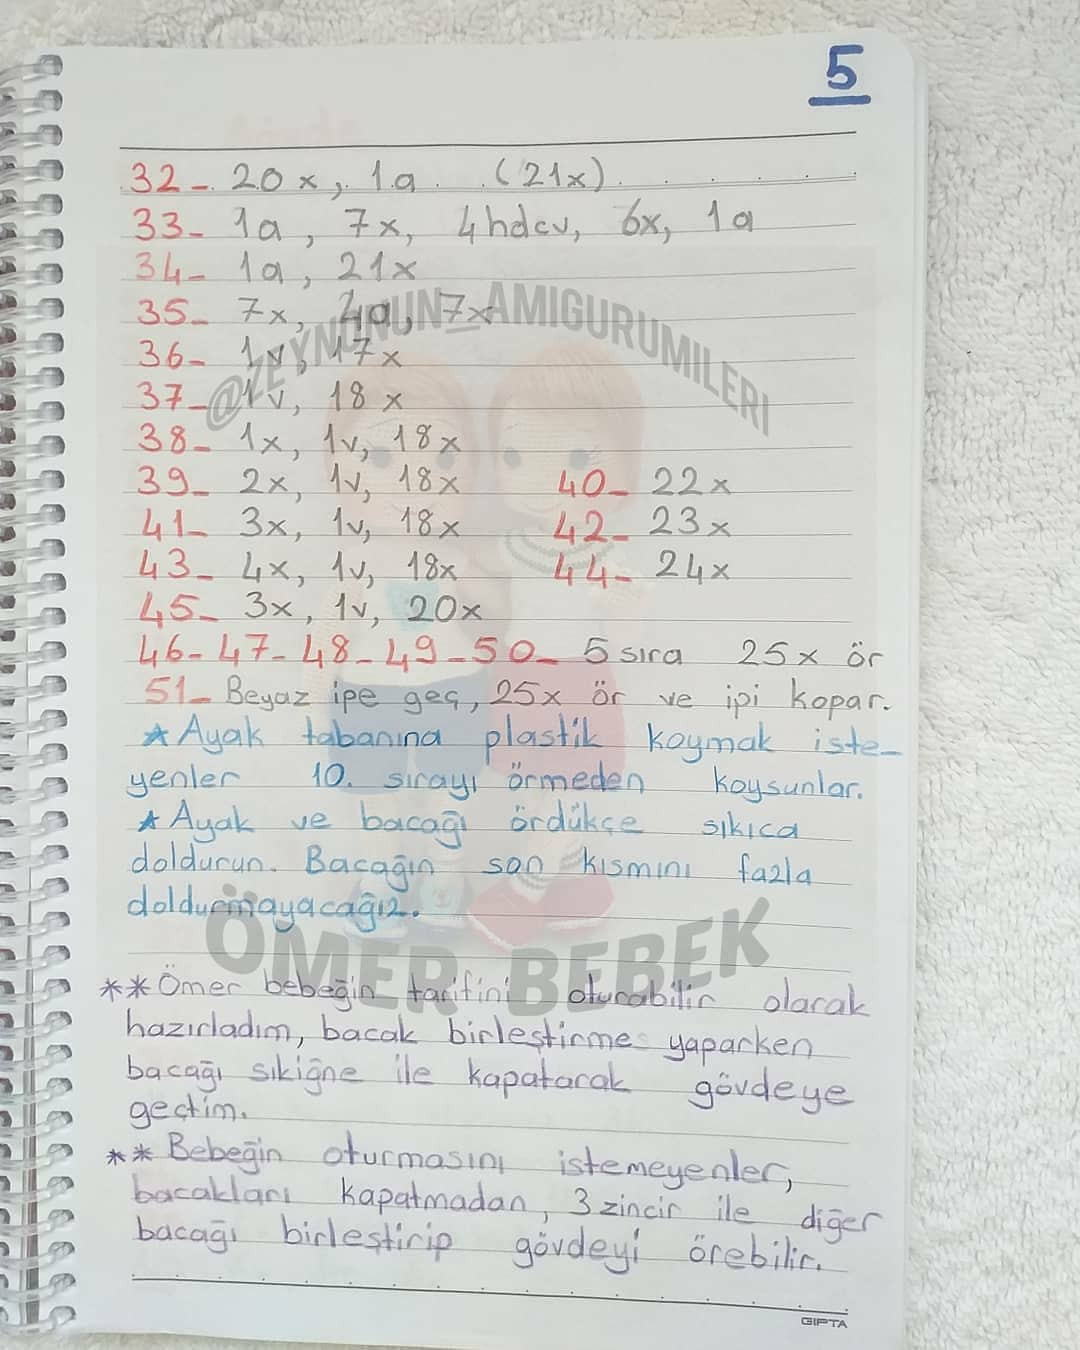 5
32- 20x, 1a (21x)
33- 1a, 7x, 4hdcv, 6x, 1a
34- 1a, 21x
35- 7x, 4a, 7x
36- 1v, 17x
37- 1v, 18x
38- 1x, 1v, 18x
39- 2x, 1v, 18x 40- 22x
41- 3x, 1v, 18x 42- 23x
43- 4x, 1v, 18x 44- 24x
45- 3x, 1v, 20x
46-47-48-49-50- 5 sıra 25x ör
51- Beyaz ipe geç, 25x ör ve ipi kopar.
★ Ayak tabanına plastik koymak iste-
yenler 10. sırayı örmeden koysunlar.
★ Ayak ve bacağı ördükçe sıkıca
doldurun. Bacağın son kısmını fazla
doldurmayacağız.
** Ömer bebeğin tarifini oturabilir olarak
hazırladım, bacak birleştirme yaparken
bacağı sıkiğne ile kapatarak gövdeye
geçtim.
** Bebeğin oturmasını istemeyenler,
bacakları kapatmadan, 3 zincir ile diğer
bacağı birleştirip gövdeyi örebilir.
GIPTA
@ZEYNONUN_AMIGURUMILERI
ÖMER BEBEK